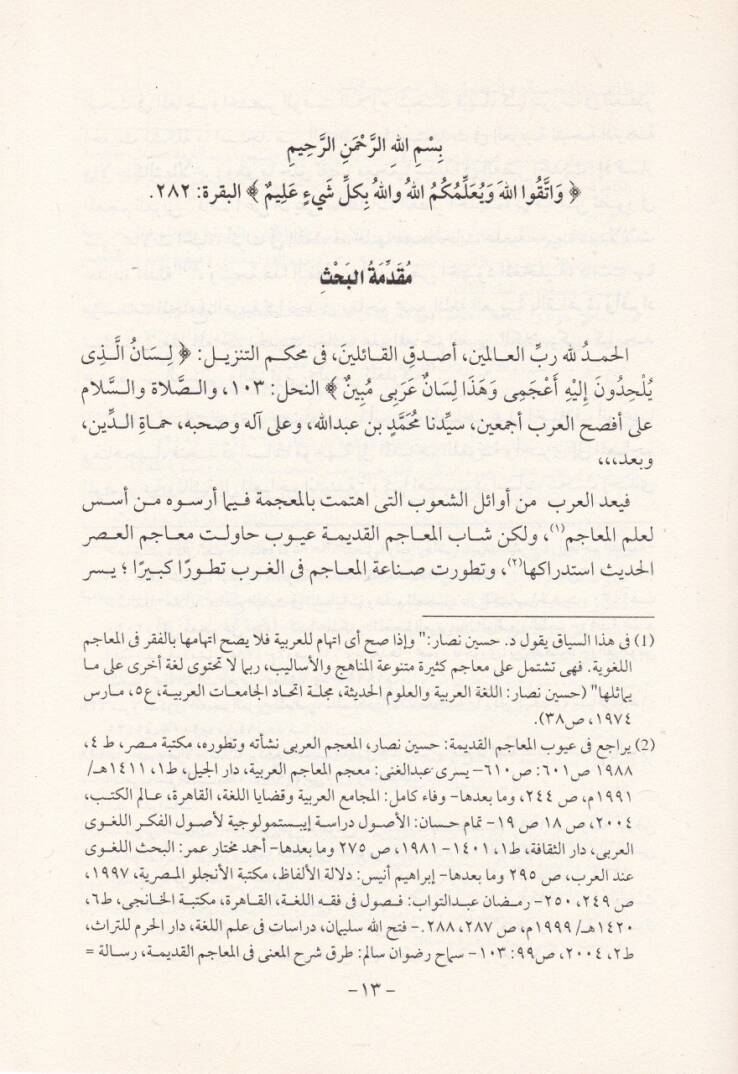 بِسْمِ اللهِ الرَّحْمَنِ الرَّحِيمِ
﴿ وَاتَّقُوا اللهَ وَيُعَلِّمُكُمُ اللهُ واللهُ بِكلِّ شَيءٍ عَلِيمٌ ﴾ البقرة: ٢٨٢.
مُقَدِّمَةُ البَحْثِ
الحمـدُ لله ربِّ العـالمين، أصـدقِ القـائلينَ، فى محكم التنزيـل: ﴿ لِـسَانُ الَّـذِى
يُلْحِدُونَ إِلَيْهِ أَعْجَمِى وَهَذَا لِسَانٌ عَرَبِى مُبِينٌ ﴾ النحل: ١٠٣، والـصَّلاة والـسَّلام
على أفصح العرب أجمعين، سيِّدنا مُحَمَّدٍ بن عبدالله، وعلى آله وصحبه، حماةِ الـدِّين،
وبعد،،،
فيعد العرب من أوائل الشعوب التى اهتمت بالمعجمة فيما أرسوه مـن أسـس
لعلم المعاجم(١)، ولكن شاب المعـاجم القديمـة عيـوب حاولـت معـاجم العـصر
الحديث استدراكها(٢)، وتطورت صناعة المعاجم فى الغـرب تطـورًا كبيـرًا ؛ يسر
(1) فى هذا السياق يقول د. حسين نصار:" وإذا صح أى اتهام للعربية فلا يصح اتهامها بالفقر فى المعاجم
اللغوية. فهى تشتمل على معاجم كثيرة متنوعة المناهج والأساليب، ربما لا تحتوى لغة أخرى على ما
يماثلها" (حسين نصار: اللغة العربية والعلوم الحديثة، مجلـة اتحـاد الجامعـات العربيـة، ع٥، مـارس
١٩٧٤، ص٣٨).
(2) يراجع فى عيوب المعاجم القديمة: حسين نصار، المعجم العربى نشأته وتطوره، مكتبة مـصر، ط ٤،
١٩٨٨ ص٦٠١: ص٦١٠- يسرى عبدالغنى: معجم المعاجم العربية، دار الجيل، ط١، ١٤١١هـ/
١٩٩١م، ص ٢٤٤، وما بعدها- وفاء كامل: المجامع العربية وقضايا اللغة، القاهرة، عـالم الكتـب،
٢٠٠٤، ص ١٨ ص ١٩- تمام حسان: الأصول دراسة إيبستمولوجية لأصول الفكر اللغـوى
العربى، دار الثقافة، ط١، ١٤٠١- ١٩٨١، ص ٢٧٥ وما بعدها- أحمد مختار عمر: البحث اللغـوى
عند العرب، ص ٢٩٥ وما بعدها- إبراهيم أنيس: دلالة الألفاظ، مكتبة الأنجلو المـصرية، ١٩٩٧،
ص ٢٤٩، ٢٥٠- رمـضان عبـدالتواب: فـصول فى فقـه اللغـة، القـاهرة، مكتبـة الخـانجى، ط٦،
١٤٢٠هـ/ ١٩٩٩م، ص ٢٨٧، ٢٨٨.- فتح الله سليمان، دراسات فى علم اللغة، دار الحرم للتراث،
ط٢، ٢٠٠٤، ص٩٩: ١٠٣- سماح رضوان سالم: طرق شرح المعنى فى المعاجم القديمـة، رسـالة =
- ١٣ -